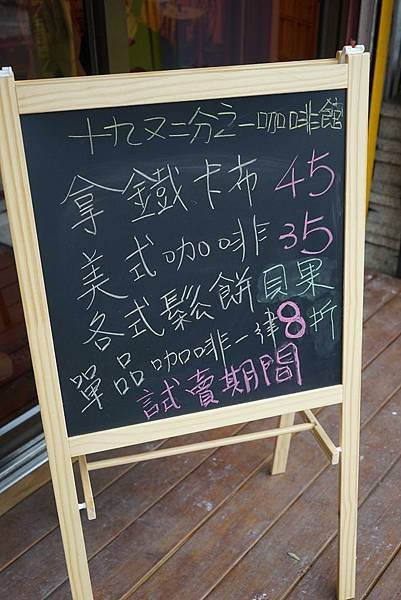 十九又二分之一咖啡館
拿鐵卡布 45
美式咖啡 35
各式鬆餅貝果
單品咖啡一律8折
試賣期間